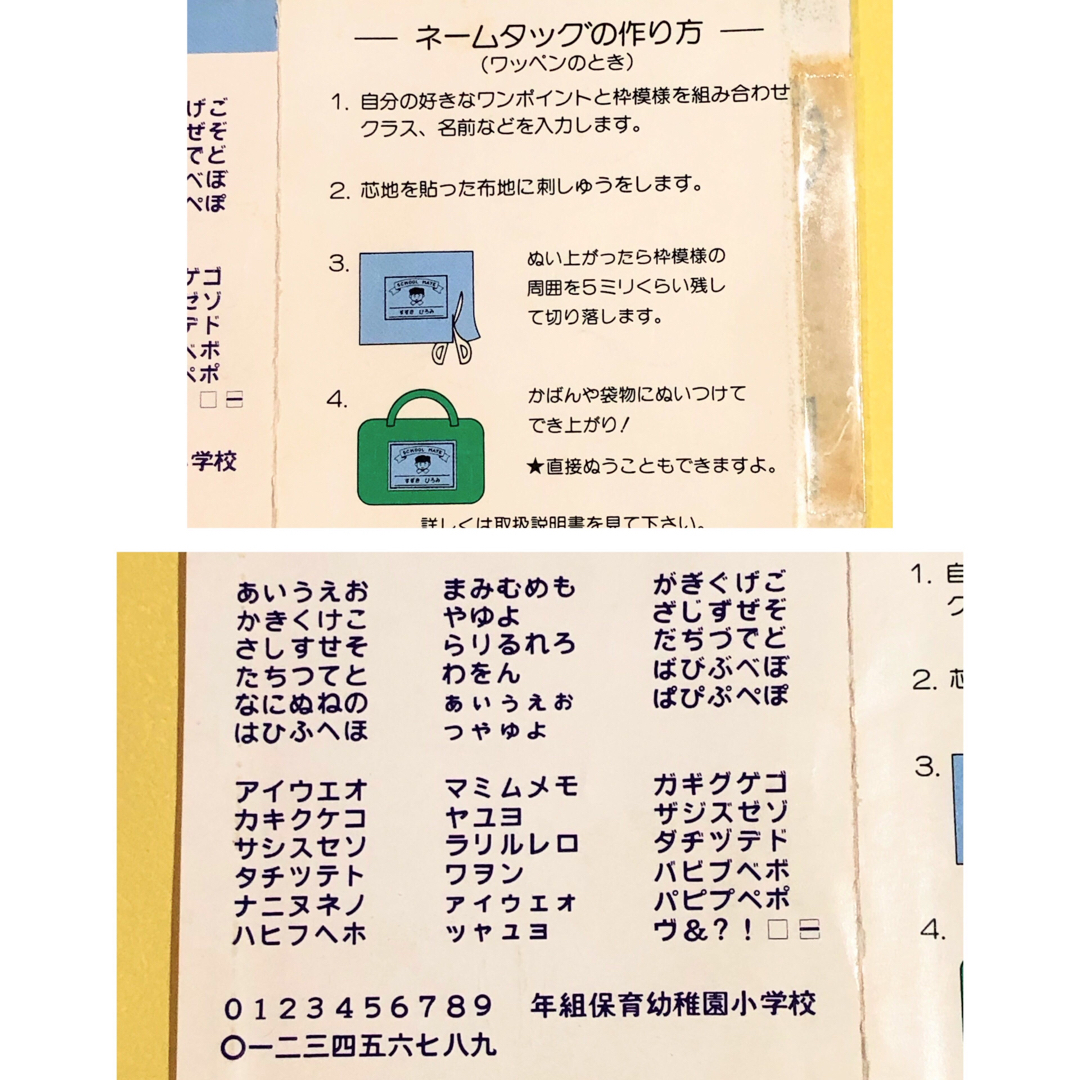 げご
ぜぞ
でど
べぼ
ぺぽ
ゲゴ
ゼゾ
デド
ベボ
ペポ
□
学校
ネームタッグの作り方
(ワッペンのとき)
1. 自分の好きなワンポイントと枠模様を組み合わせ
クラス、名前などを入力します。
2. 芯地を貼った布地に刺しゅうをします。
3. ぬい上がったら枠模様の
周囲を5ミリくらい残し
て切り落します。
SCHOOL MATE
すずき ひろみ
4. かばんや袋物にぬいつけて
でき上がり!
★直接ぬうこともできますよ。
SCHOOL MATE
すずき ひろみ
詳しくは取扱説明書を見て下さい。
あいうえお
かきくけこ
さしすせそ
たちつてと
なにぬねの
はひふへほ
まみむめも
やゆよ
らりるれろ
わをん
ぁぃぅぇぉ
っゃゅょ
がぎぐげご
ざじずぜぞ
だぢづでど
ばびぶべぼ
ぱぴぷぺぽ
アイウエオ
カキクケコ
サシスセソ
タチツテト
ナニヌネノ
ハヒフヘホ
マミムメモ
ヤユヨ
ラリルレロ
ワヲン
ァィゥェォ
ッャュョ
ガギグゲゴ
ザジズゼゾ
ダヂヅデド
バビブベボ
パピプペポ
ヴ&?!□
0123456789 年組保育幼稚園小学校
〇一二三四五六七八九
1. 自
ク
2. 芯
3.
4.